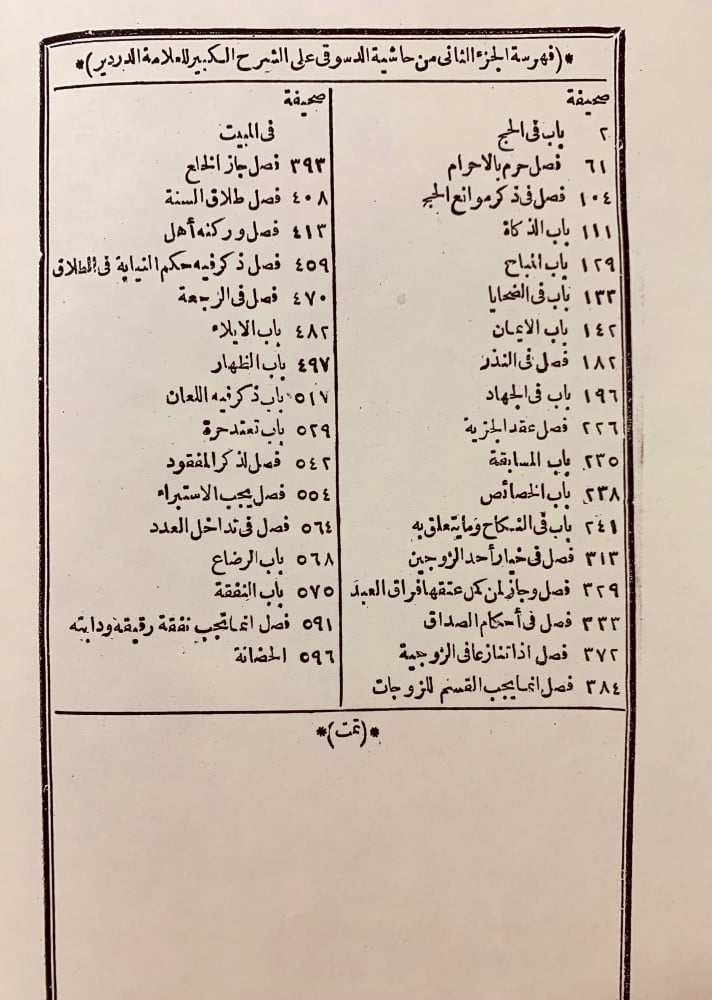 *(فهرسة الجزء الثانى من حاشية الدسوقى على الشرح الكبير للعلامة الدردير)*
صحيفة
٢ باب فى الحج
٦١ فصل حرم بالاحرام
١٠٤ فصل فى ذكر موانع الحج
١١١ باب الذكاة
١٢٩ باب المباح
١٣٣ باب فى الضحايا
١٤٢ باب الايمان
١٨٢ فصل فى النذر
١٩٦ باب فى الجهاد
٢٢٦ فصل عقد الجزية
٢٣٥ باب المسابقة
٢٣٨ باب الخصائص
٢٤١ باب فى النكاح وما يتعلق به
٣١٣ فصل فى خيار أحد الزوجين
٣٢٩ فصل وجاز لمن كمل عتقها فراق العبد
٣٣٣ فصل فى أحكام الصداق
٣٧٢ فصل اذا تنازعا فى الزوجية
٣٨٤ فصل انما يجب القسم للزوجات
صحيفة
فى المبيت
٣٩٣ فصل جاز الخلع
٤٠٨ فصل طلاق السنة
٤١٣ فصل وركنه أهل
٤٥٩ فصل ذكر فيه حكم النيابة فى الطلاق
٤٧٠ فصل فى الرجعة
٤٨٢ باب الايلاء
٤٩٧ باب الظهار
٥١٧ باب ذكر فيه اللعان
٥٢٩ باب تعتد حرة
٥٤٢ فصل لذكر المفقود
٥٥٤ فصل يجب الاستبراء
٥٦٤ فصل فى تداخل العدد
٥٦٨ باب الرضاع
٥٧٥ باب النفقة
٥٩١ فصل انما تجب نفقة رقيقه ودابته
٥٩٦ الحضانة
*(تمت)*